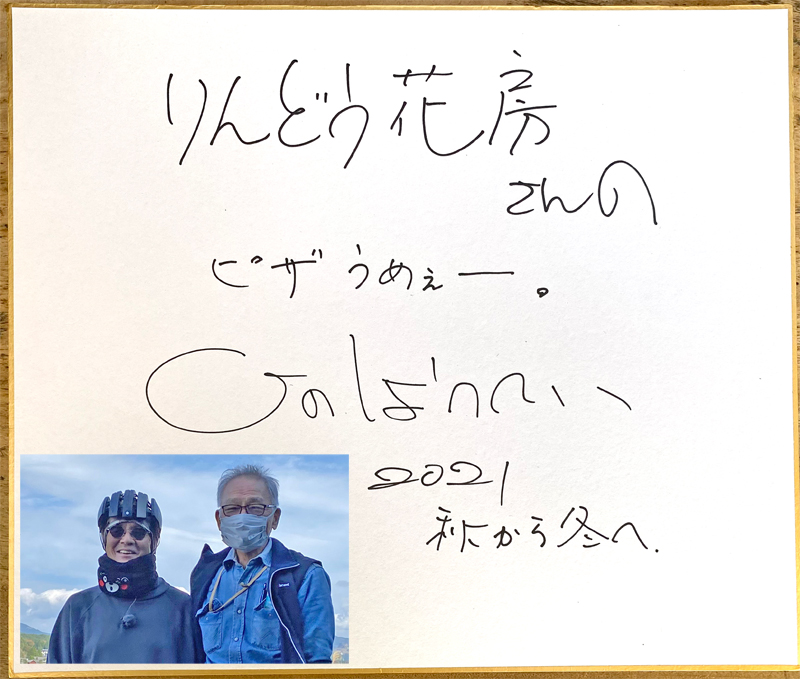 りんどう花房
さんの
ピザうめぇー。
ひのしょうへい
2021
秋から冬へ.